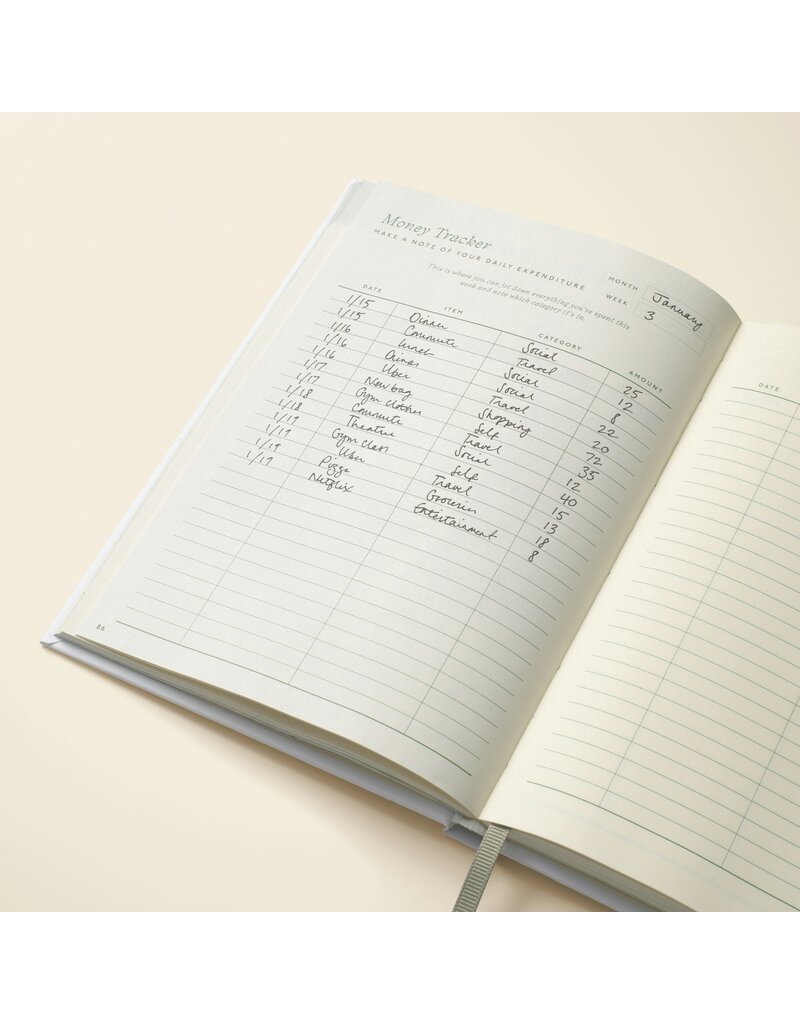 Money Tracker
MAKE A NOTE OF YOUR DAILY EXPENDITURE
This is where you can jot down everything you've spent this
week and note which category it's in.
MONTH January
WEEK 3
DATE ITEM CATEGORY AMOUNT
1/15 Dinner Social 25
1/15 Commute Travel 12
1/16 Lunch Social 8
1/16 Drinks Social 22
1/16 Uber Travel 20
1/17 New bag Shopping 72
1/17 Gym clothes Self 35
1/18 Commute Travel 12
1/18 Theatre Social 40
1/19 Gym class Self 15
1/19 Uber Travel 13
1/19 Pizza Groceries 18
1/19 Netflix Entertainment 8
86
DATE